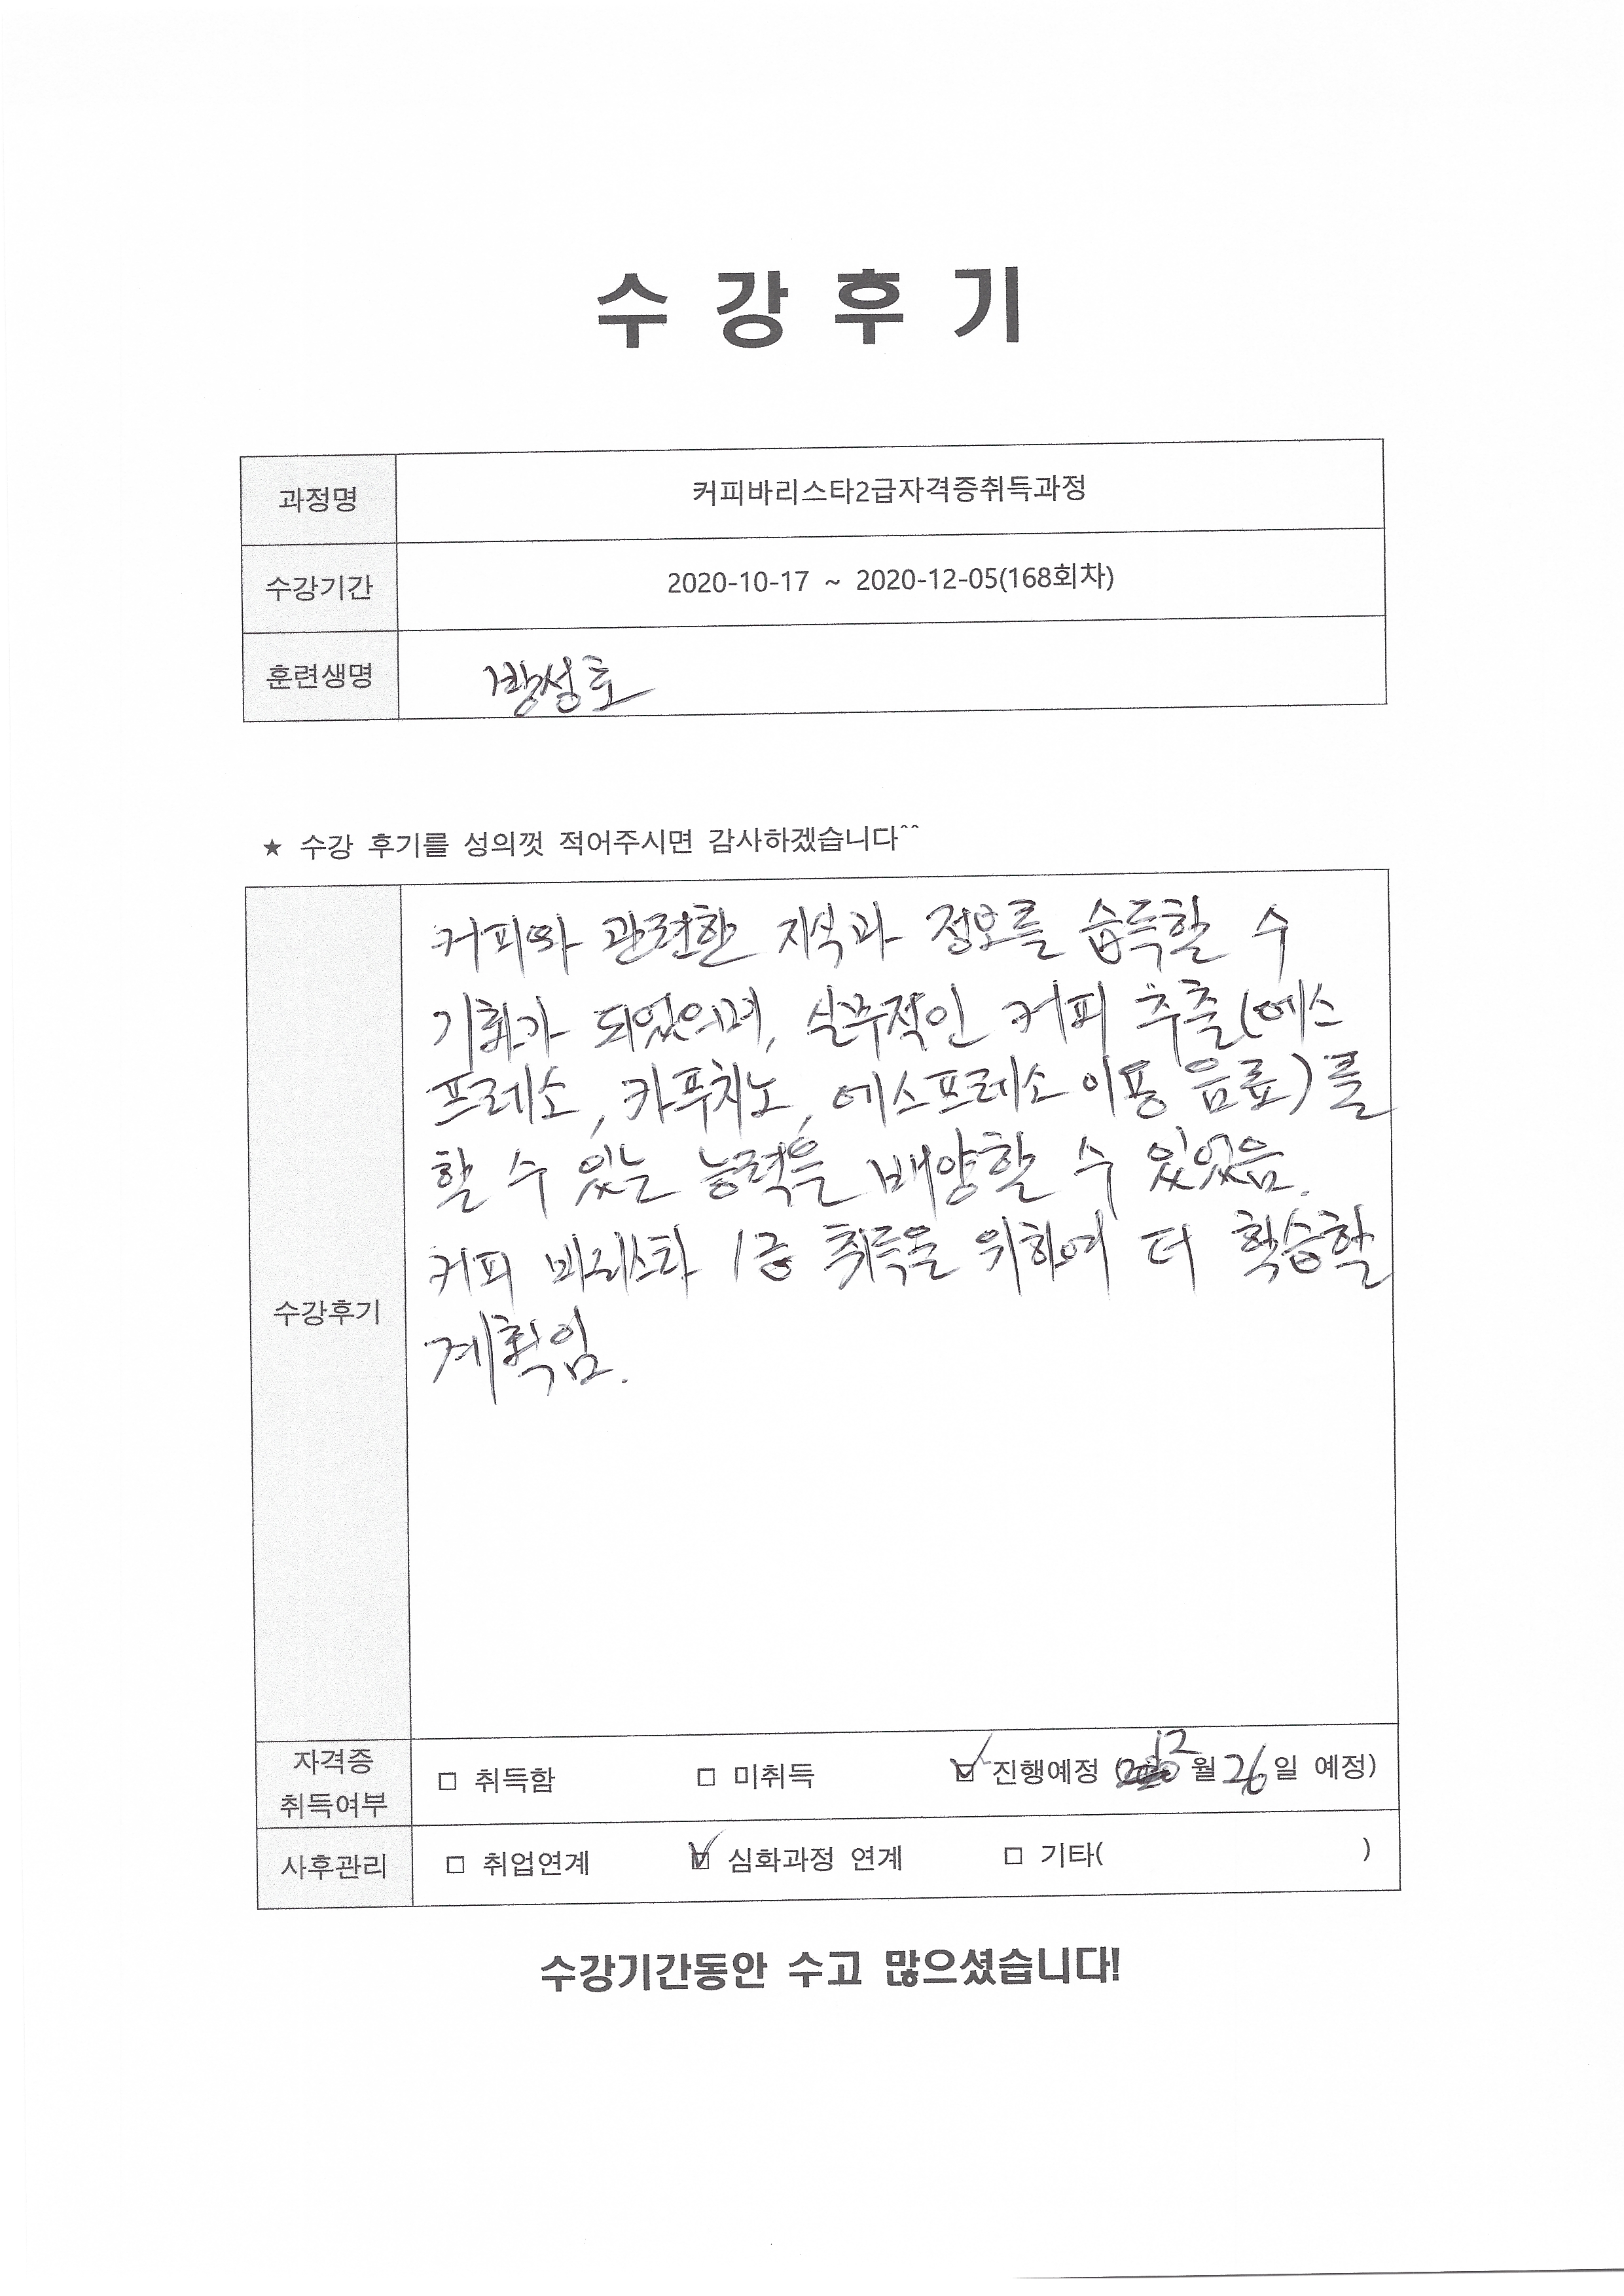 수 강 후 기
과정명 커피바리스타2급자격증취득과정
수강기간 2020-10-17 ~ 2020-12-05(168회차)
훈련생명 방성호
★ 수강 후기를 성의껏 적어주시면 감사하겠습니다^^
수강후기
커피와 관련한 지식과 정보를 습득할 수
기회가 되었으며, 실무적인 커피 추출(에스
프레소, 카푸치노, 에스프레소 이용 음료)를
할 수 있는 능력을 배양할 수 있었음.
커피 바리스타 1급 취득을 위하여 더 학습할
계획임.
자격증
취득여부
□ 취득함 □ 미취득 ☑ 진행예정 (12월 26일 예정)
사후관리 □ 취업연계 ☑ 심화과정 연계 □ 기타( )
수강기간동안 수고 많으셨습니다!